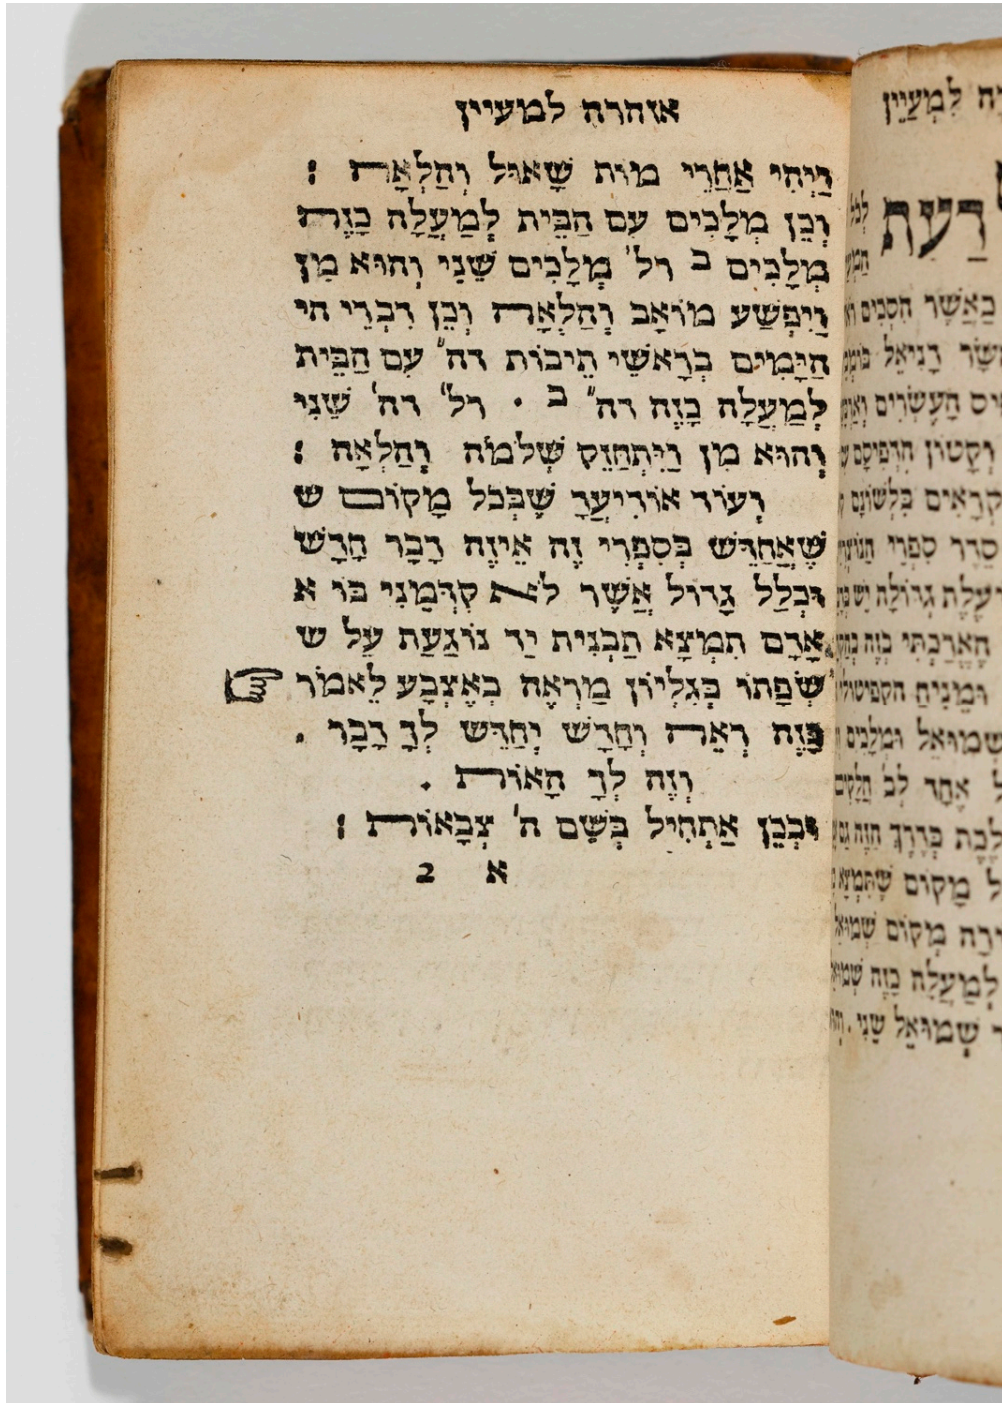 אזהרה למעיין
וַיְהִי אַחֲרֵי מוֹת שָׁאוּל וְהָלְאָה :
וְכֵן מְלָכִים עִם הַבַּיִת לְמַעְלָה כָּזֶה
מְלָכִים ב רל' מְלָכִים שֵׁנִי וְהוּא מִן
וַיִּפְשַׁע מוֹאָב וְהָלְאָה וְכֵן דִבְרֵי הי
הַיָּמִים בְּרָאשֵׁי תֵיבוֹת דה" עִם הַבֵּית
לְמַעְלָה כָּזֶה דה" ב . רל' דה' שֵׁנִי
וְהוּא מִן וַיִּתְחַזֵּק שְׁלֹמֹה וְהָלְאָה :
וְעוֹד אוֹדִיעֲךָ שֶׁבְּכֹל מָקוֹם ש
שֶׁאֲחַדֵּשׁ בְּסִפְרִי זֶה אֵיזֶה דָבָר חָדָשׁ
וּכְלַל גָּדוֹל אֲשֶׁר לֹא קִדְּמָנִי בּוֹ א
אָדָם תִּמְצָא תַּבְנִית יַד נוֹגַעַת עַל ש
שְׂפָתוֹ בְּגִלְיוֹן מַרְאֶה בְאֶצְבָּע לֵאמֹר ☞
כָּזֶה רְאֵה וְחָדָשׁ יְחַדֵּש לְךָ דָּבָר .
וְזֶה לְךָ הָאוֹת .
וּבְכֵן אַתְחִיל בְּשֵׁם ה' צְבָאוֹת :
א 2
ה לִמְעַיֵּין
דַעַת
כַאֲשֶׁר הִסְכִּים
דָנִיאֵל
הָעֶשְׂרִים
וְקָטוֹן הִדְפִּיסָם
קְרָאִים בִּלְשׁוֹנָם
סֵדֶר סִפְרֵי
גְדוֹלָה
הֶאֱרַכְתִּי בָזֶה
וּמֵנִיחַ
שְמוּאֵל וּמְלָכִים
אֶחָד לְב' חֲלָקִים
בְּדֶרֶךְ הַזֶּה
מָקוֹם שֶׁתִּמְצָא
מְקוֹם
לְמַעְלָה כָּזֶה
שְׁמוּאֵל שֵׁנִי .